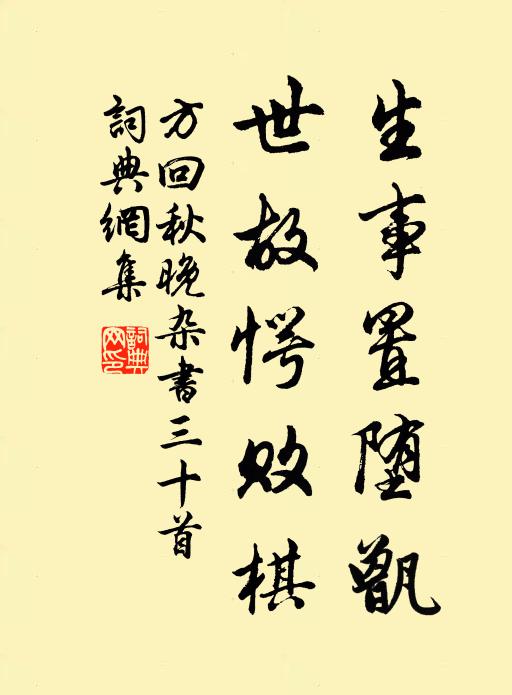 生事置堕甑
世故愕败棋
方回秋晚杂书三十首
詞典網集
詞典网印